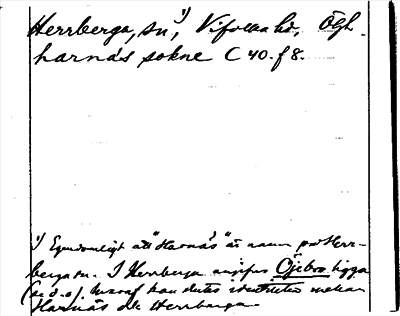 Herrberga, sn¹⁾, Vifolka hd, Ögh.
harnäs sokne C 40. f 8.
¹⁾ Egendomligt att "Harnäs" är namn på Herr-
berga sn. I Herrberga angifves Öjebro ligga
(se d.o). Hvaraf kan dutes identiteten mellan
Harnäs och Herrberga